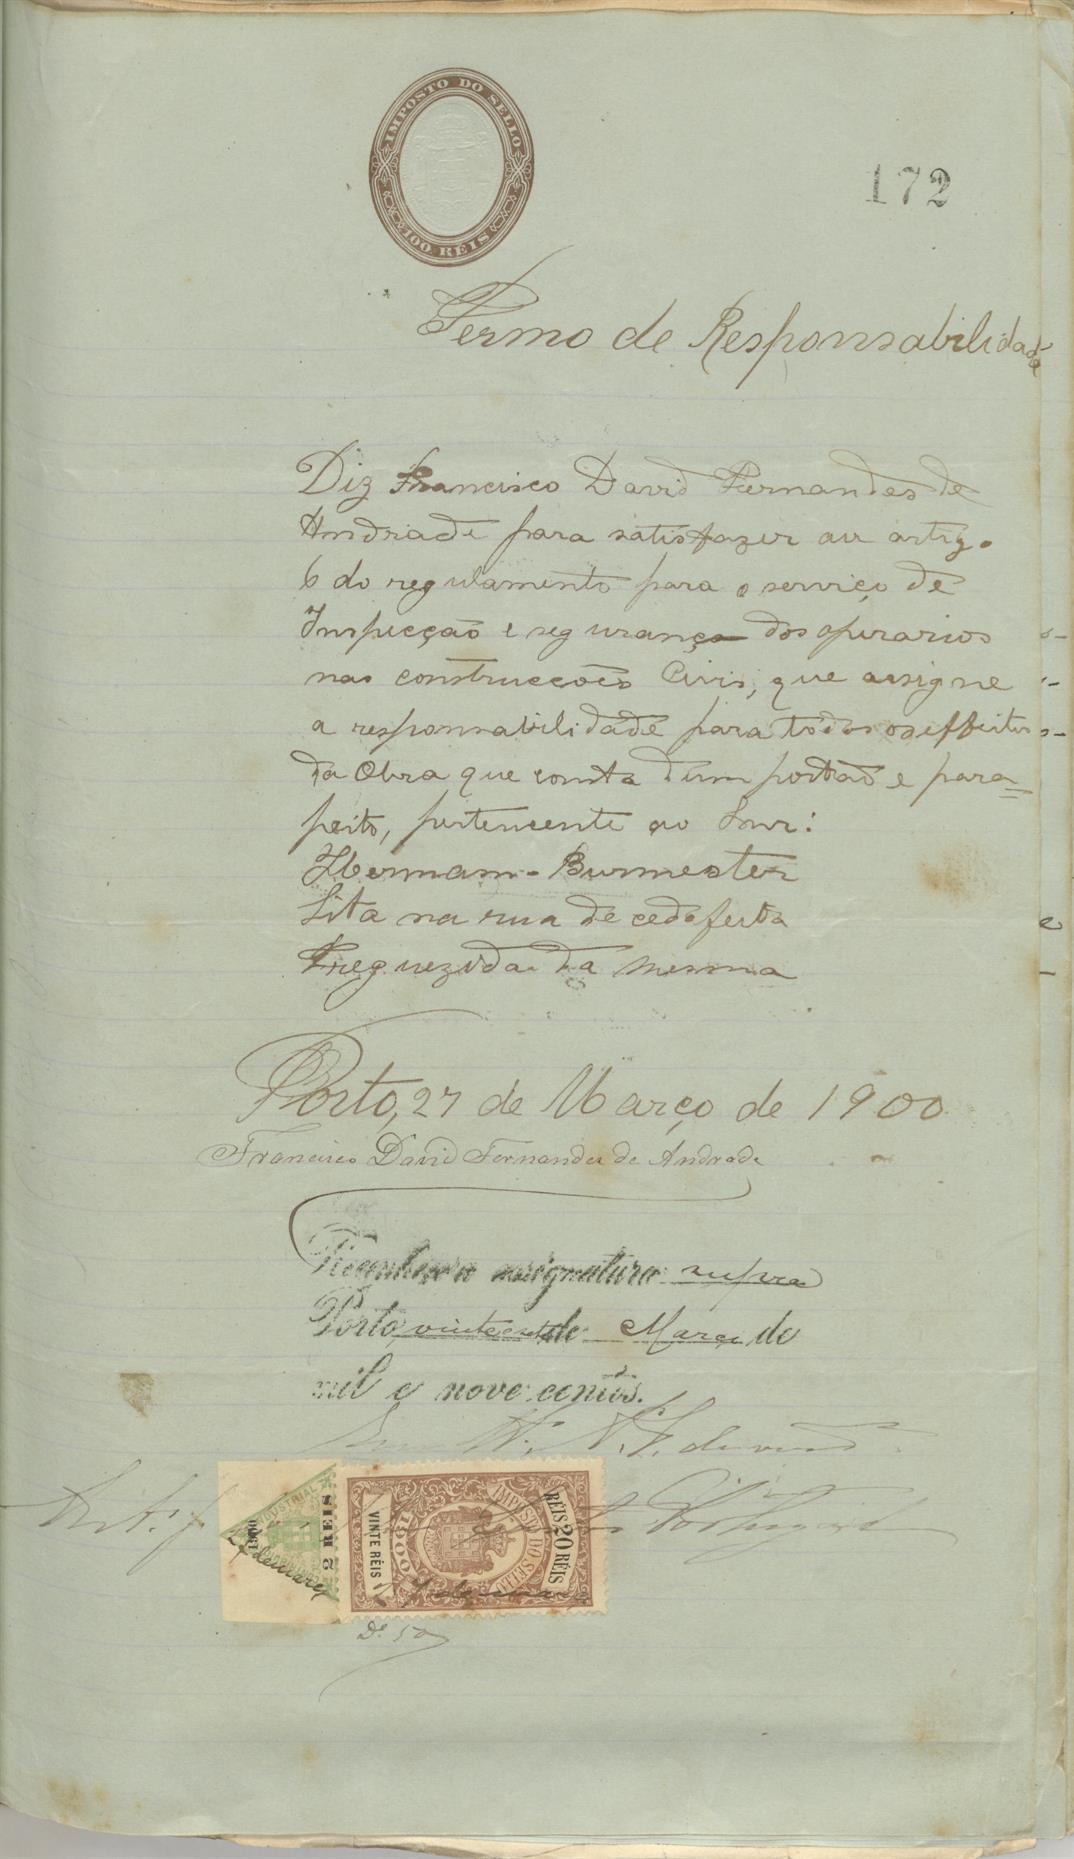 IMPOSTO DO SELLO
100 RÉIS
172
Termo de Responsabilidade
Diz Francisco David Fernandes de
Andrade para satisfazer au artigo
6 do regulamento para o serviço de
Inspecção e segurança dos operarios
nas construcções Civis, que assigne
a responsabilidade para todos os effeitos
da Obra que consta dum portão e para=
peito, pertencente ao Snr:
Hermam-Burmester
Sita na rua de cedofeita
Freguezida da mesma
Porto, 27 de Março de 1900
Francisco David Fernandes de Andrade
Reconheço a assignatura supra
Porto, vinte e sete de Março de
mil e nove centos.
INDUSTRIAL
2 REIS
27 de março
IMPOSTO DO SELLO
1900
VINTE RÉIS
RÉIS 20 RÉIS
D. 50